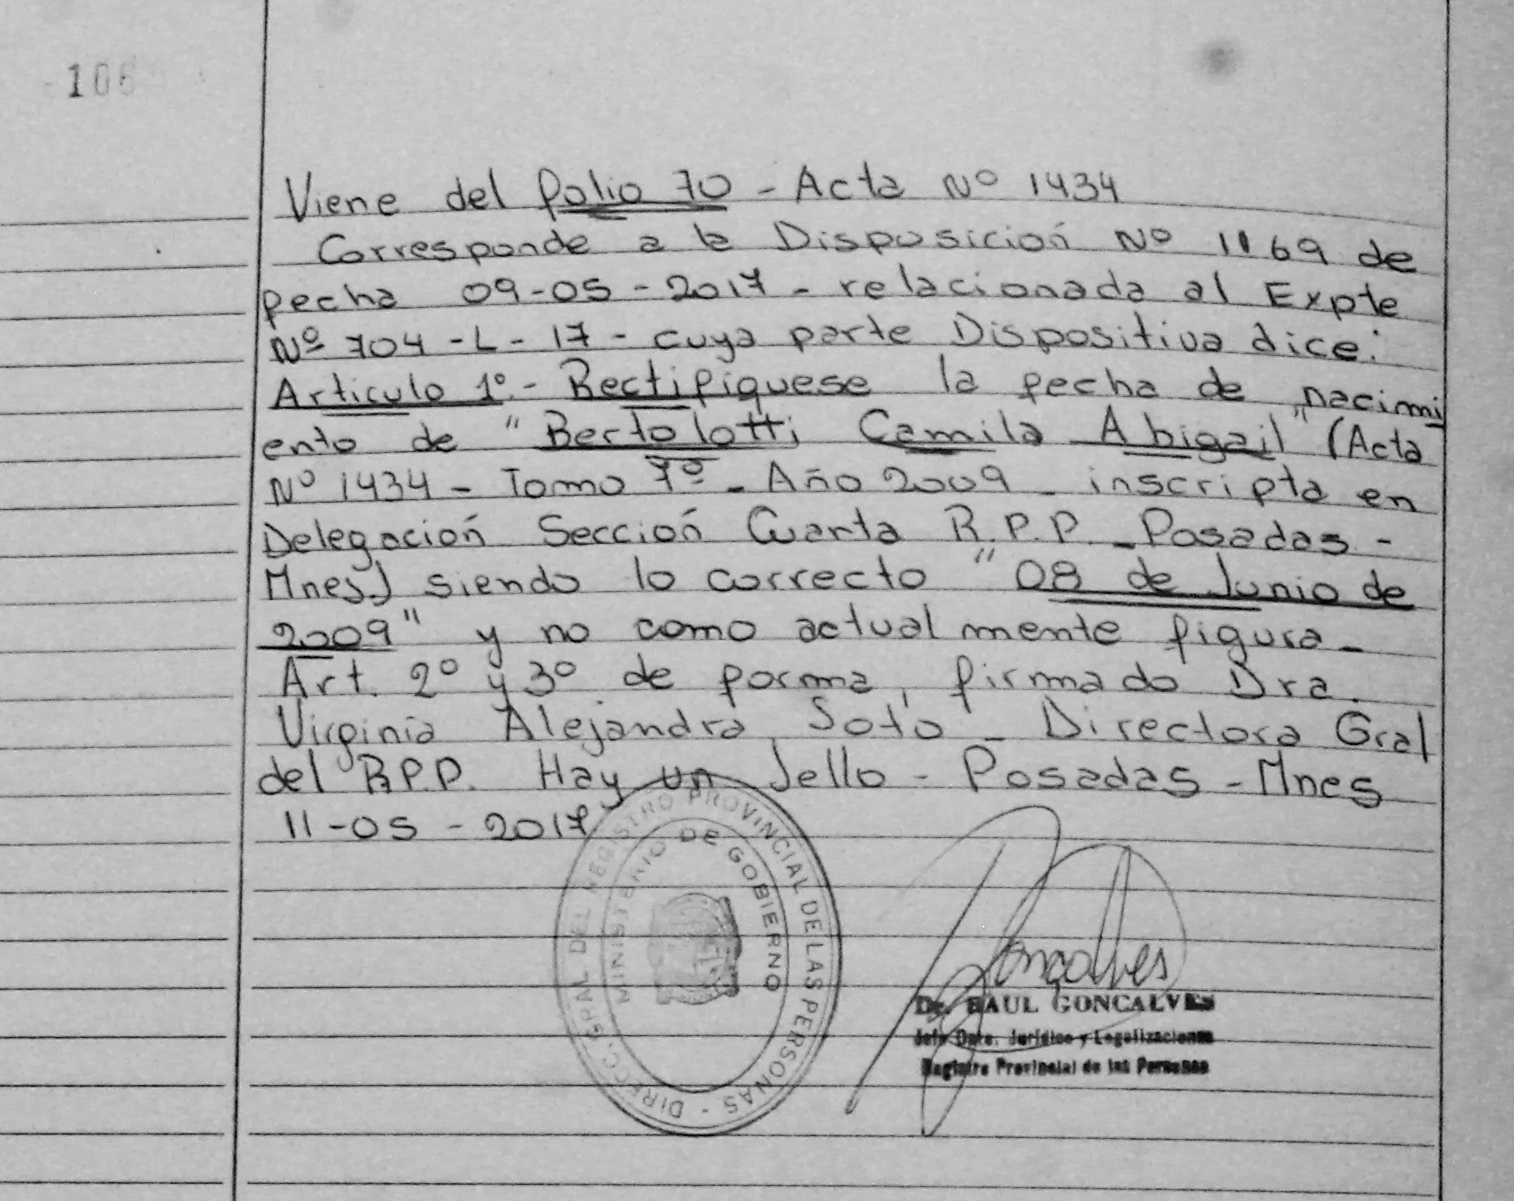 106
Viene del folio 70 - Acta Nº 1434
Corresponde a la Disposición Nº 1169 de
fecha 09-05-2017 - relacionada al Expte
Nº 704 - L - 17 - cuya parte Dispositiva dice:
Articulo 1º.- Rectifíquese la fecha de nacimi
ento de "Bertolotti Camila Abigail" (Acta
Nº 1434 - Tomo 7º - Año 2009 - inscripta en
Delegación Sección Cuarta R.P.P. - Posadas -
Mnes) siendo lo correcto "08 de Junio de
2009" y no como actualmente figura -
Art. 2º y 3º de forma, firmado Dra.
Virginia Alejandra Soto - Directora Gral
del R.P.P. Hay un Sello - Posadas - Mnes
11-05-2017
DIRECC. GRAL DEL REGISTRO PROVINCIAL DE LAS PERSONAS -
MINISTERIO DE GOBIERNO
Goncalves
Dr. RAUL GONCALVES
Jefe Dpto. Jurídico y Legalizaciones
Registro Provincial de las Personas